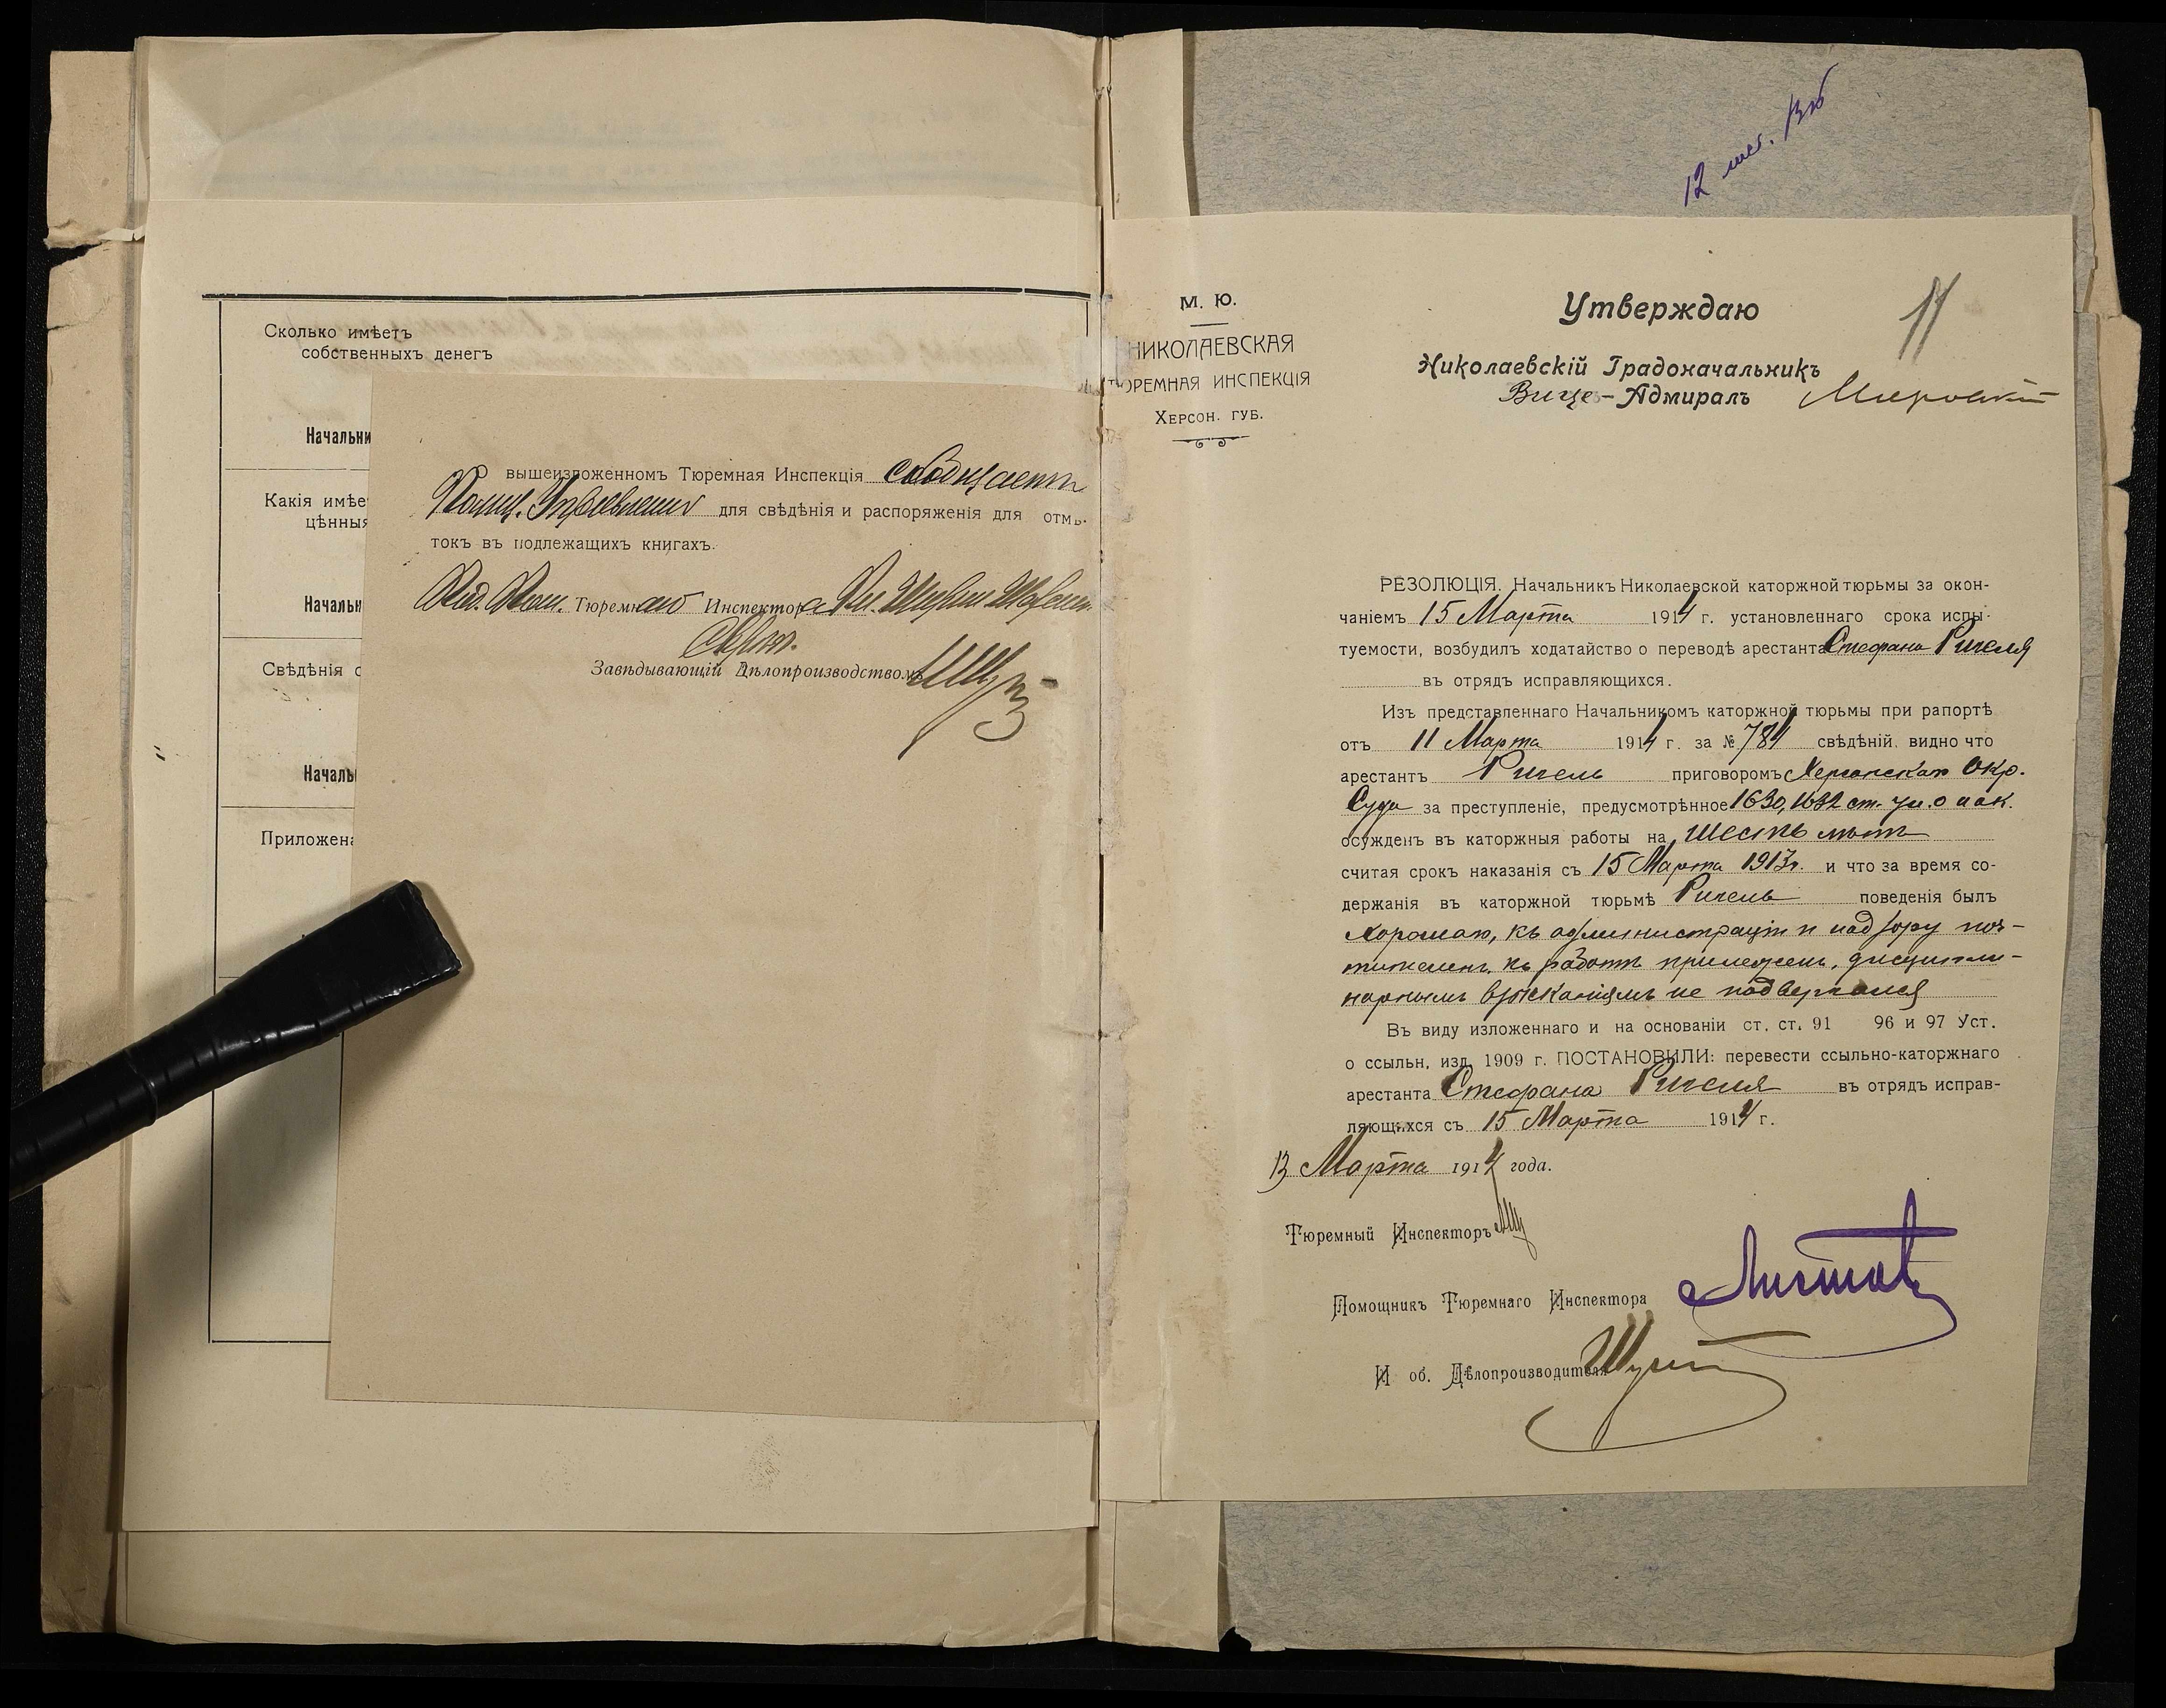 Сколько имѣетъ
собственныхъ денегъ
Начальни
Какія имѣе
цѣнныя
Начальн
Свѣдѣнія о
Началь
Приложена
вышеизложенномъ Тюремная Инспекція сообщаетъ
Полиц. Управленію для свѣдѣнія и распоряженія для отмѣ-
токъ въ подлежащихъ книгахъ.
Тюремнаго Инспектора
Завѣдывающій Дѣлопроизводствомъ
12
М. Ю.
НИКОЛАЕВСКАЯ
ТЮРЕМНАЯ ИНСПЕКЦІЯ
ХЕРСОН. ГУБ.
Утверждаю
11
Николаевскій Градоначальникъ
Вице-Адмиралъ
РЕЗОЛЮЦІЯ. Начальникъ Николаевской каторжной тюрьмы за окон-
чаніемъ 15 Марта 1914 г. установленнаго срока испы-
туемости, возбудилъ ходатайство о переводѣ арестанта Стефана Ригеля
въ отрядъ исправляющихся.
Изъ представленнаго Начальникомъ каторжной тюрьмы при рапортѣ
отъ 11 Марта 1914 г. за № 781 свѣдѣній, видно что
арестантъ Ригель приговоромъ Херсонскаго Окр.
Суда за преступленіе, предусмотрѣнное 1630, 1632 ст. ул. о нак.
осужденъ въ каторжныя работы на шесть лѣтъ
считая срокъ наказанія съ 15 Марта 1913 г. и что за время со-
держанія въ каторжной тюрьмѣ Ригель поведенія былъ
хорошаго, къ администраціи и надзору поч-
тителенъ, къ работѣ прилеженъ, дисципли-
нарнымъ взысканіямъ не подвергался
Въ виду изложеннаго и на основаніи ст. ст. 91 96 и 97 Уст.
о ссыльн, изд. 1909 г. ПОСТАНОВИЛИ: перевести ссыльно-каторжнаго
арестанта Стефана Ригеля въ отрядъ исправ-
ляющихся съ 15 Марта 1914 г.
13 Марта 1914 года.
Тюремный Инспекторъ
Помощникъ Тюремнаго Инспектора
И об. Дѣлопроизводителя